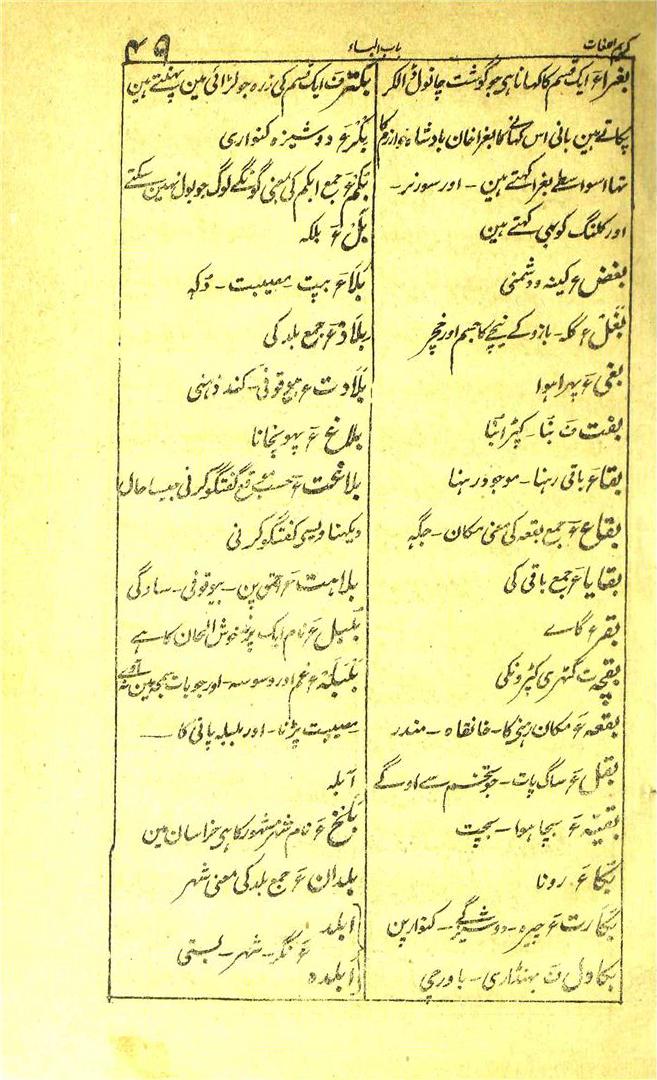 کریم اللغات
باب الباء
۴۹
بغرا ءَ ایک قسم کا کھانا ہی جو گوشت چانول ڈالکر
پکاتے ہین بانی اس کھانے کا بغرا خان بادشاہ خوارزم کا
تھا اسواسطے بغرا کہتے ہین - اور سور نر -
اور کلنگ کو بھی کہتے ہین
بغض ءَ کینہ و دشمنی
بغل ءَ گلہ - بازو کے نیچے کا جسم اور خچر
بغی ءَ پھرا ہوا
بفت فَ بنا - کپڑا بنا
بقا ءَ باقی رہنا - موجود رہنا
بقاع ءَ جمع بقعہ کی معنی مکان - جگہ
بقایا ءَ جمع باقی کی
بقر ءَ گاے
بقچہ تَ گٹھری کپڑونکی
بقعہ ءَ مکان رہنی کا - خانقاہ - مندر
بقل ءَ ساگ پات - جو تخم سے اوگے
بقیہ ءَ بچا ہوا - بچت
بکا ءَ رونا
بکارت ءَ چیرہ - دوشیزگی - کنوارپن
بکاول فَ بھنڈاری - باورچی
بکتر فَ ایک قسم کی زرہ جو لڑائی مین پہنتے ہین
بکر ءَ دوشیزہ کنواری
بکم ءَ جمع ابکم کی معنی گونگے لوگ جو بول نہین سکتے
بل ءَ بلکہ
بلا ءَ بپت - مصیبت - دکہ
بلاد ءَ جمع بلد کی
بلادت ءَ بیوقوفی - کند ذہنی
بلاغ ءَ پہونچانا
بلاغت ءَ حسب موقع گفتگو کرنی جیسا حال
دیکھنا ویسی گفتگو کرنی
بلاہت ءَ احمق پن - بیوقوفی - سادگی
بلبل ءَ نام ایک پرند خوش الحان کا ہے
بلبلہ ءَ غم اور وسوسہ - اور جو بات سمجھ مین نہ آوے
مصیبت پڑنا - اور بلبلہ پانی کا
آبلہ
بلخ ءَ نام شہر مشہور کا ہی خراسان مین
بلدان ءَ جمع بلد کی معنی شہر
بلد
ءَ نگر - شہر - بستی
بلدہ